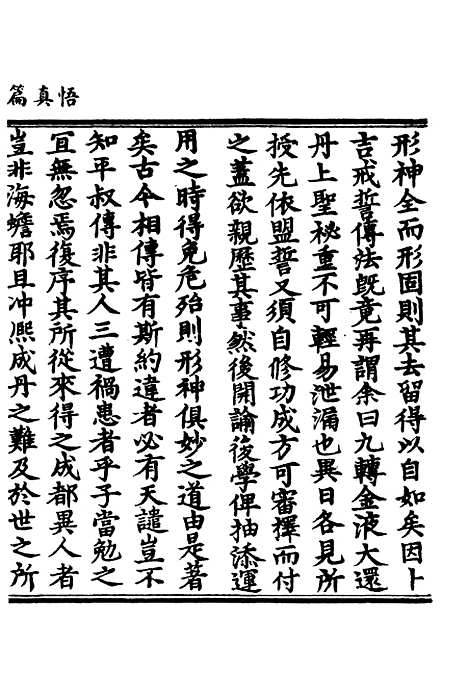 悟真篇
形神全而形固則其去留得以自如矣因卜
吉戒誓傳法既竟再謂余曰九轉金液大還
丹上聖祕重不可輕易泄漏也異日各見所
授先依盟誓又須自修功成方可審擇而付
之蓋欲親歷其事然後開諭後學俾抽添運
用之時得免危殆則形神俱妙之道由是著
矣古今相傳皆有斯約違者必有天譴豈不
知平叔傳非其人三遭禍患者乎子當勉之
宜無忽焉復序其所從來得之成都異人者
豈非海蟾耶且冲熈成丹之難及於世之所